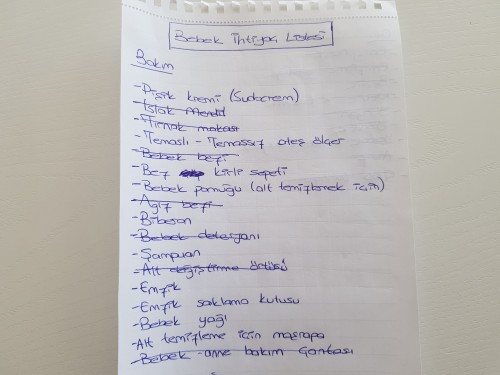 Bebek İhtiyaç Listesi
Bakım
- Pişik kremi (Sudocrem)
- Islak Mendil
- Tırnak makası
- Temaslı - Temassız ateş ölçer
- Bebek bezi
- Bez kirli sepeti
- Bebek pamuğu (alt temizlemek için)
- Ağız bezi
- Biberon
- Bebek deterjanı
- Şampuan
- Alt değiştirme örtüsü
- Emzik
- Emzik saklama kutusu
- Bebek yağı
- Alt temizleme için maşrapa
- Bebek - anne bakım çantası